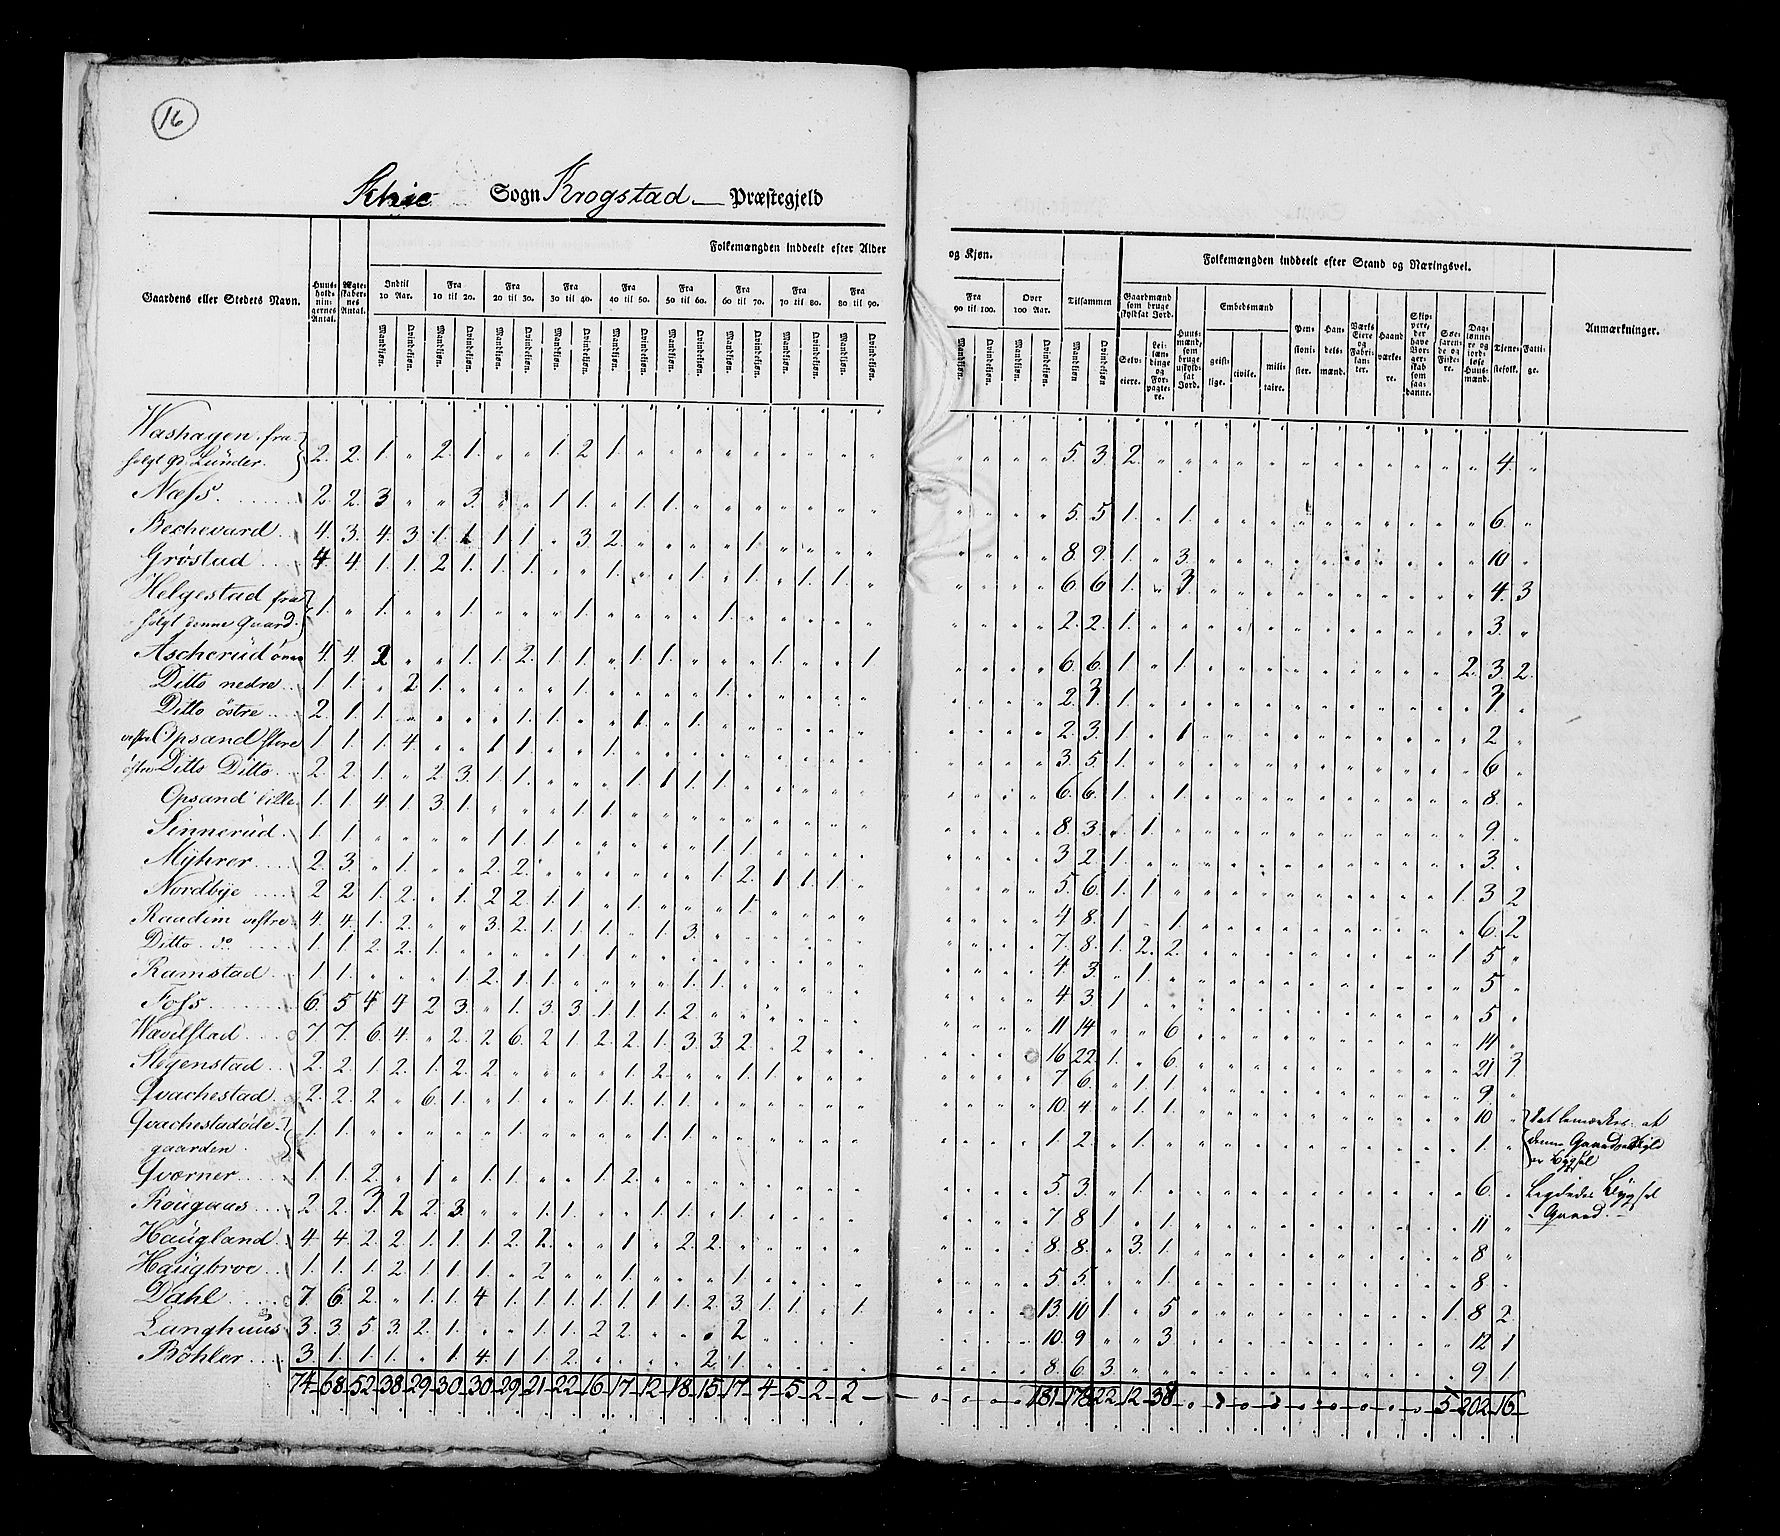 16
Schie Sogn Krogstad Præstegjeld
Gaardens eller Stedets Navn.
Huus-holdnin-gernes Antal.
Ægte-skaber-nes Antal.
Folkemængden inddeelt efter Alder og Kjøn.
Indtil 10 Aar. Fra 10 til 20. Fra 20 til 30. Fra 30 til 40. Fra 40 til 50. Fra 50 til 60. Fra 60 til 70. Fra 70 til 80. Fra 80 til 90. Fra 90 til 100. Over 100 Aar. Tilsammen
Mandkjøn. Qvindekjøn.
Folkemængden inddeelt efter Stand og Næringsvei.
Gaardmænd som bruge skyldsat Jord.
Selv-eiere. Lei-lændinge og For-pagte-re.
Huus-mænd, som bruge uskyld-sat Jord.
Embedsmænd
geist-lige. civile. mili-taire.
Pen-sioni-ster. Han-dels-mænd. Værks Eiere og Fabri-kan-ter. Haand-værke-re. Skip-pere, der have Bor-ger-skab som saa-danne. Søe-faren-de og Fiske-re. Dag-lønne-re og jord-løse Huus-mænd. Tjene-stefolk. Fatti-ge.
Anmærkninger.
Washagen fra-
solgt Gd. Lunder. 2. 2. 1. „ 2. 1. „ „ 1. 2. 1. 5. 3. 2. 4.
Næss 2. 2. 3 „ „ 3. „ „ 1. 1. „ 1. 1. 5. 5. 1. „ 1. 6.
Bechevard 4. 3. 4. 3. 1. 1 1 1. „ 3 2. „ „ „ „ 1. 8. 9. 1. „ 3. 10.
Grøstad 4. 4. 1. 1. 2. 1. 1. 1. „ „ 1. „ „ 1. „ 1. „ 1. 1. 6 6 1. „ 3. 4. 3
Helgestad fra
solgt denne Gaard. 1. „ 1. „ „ 1. „ „ „ 1. „ „ „ „ 1. 2. 2. 1. 3.
Ascherud 4. 4. 2 „ „ 1. 1. 2. 1. 1. „ 1. 1. „ „ „ 1. „ „ 1 6. 6. 1. „ 1. 2. 3. 2.
Ditto nedre 1. 1. „ 2 1. „ „ „ „ 1. „ „ „ „ 1. 2. 3. 1. 3.
Ditto østre 2. 1. 1. „ „ „ „ 1. 1. „ „ 1. „ 1. 2. 3. 1. „ 1 2
vestre Opsand store 1. 1. 1. 4. „ „ 1 1. „ „ 1. 3. 5. 1. 6
østre Ditto Ditto 2. 2. 1. „ 2. 3. 1. 1. „ „ „ 1. 1 1. 1. 6. 6. 1. „ 1. 8.
Opsand lille 1. 1. 4. 1. 3. 1. „ „ „ 1. 1. 8. 3. „ 1. 9.
Sinnerud 1. 1. „ „ „ „ 1. 1 1. „ „ „ „ „ 1. 1. 3 2. 1. 3.
Myhrer 2. 3. „ 1. „ „ 2. 2. „ „ „ „ „ „ 1. 2. 1 1. 1. 5. 6. 1. 1 1. 3 2
Nordbye 2 2 1. 2. „ 1. 2 2. 1. 1. „ 1. „ „ „ 1. 4 8. 1. „ 1. 6. 2
Raadim vestre 4. 4. 1. 2. „ „ 3. 2. 1. 1. 1. „ 1. 3. 7. 8. 1. 2. 2. 1 5
Ditto do 1. 1 2. 2. 1. „ „ „ „ 1. 1 4 3. „ 1. 5
Ramstad 1. 1. „ „ „ 1. 2. 1. 1. „ „ „ „ 1. 1. 4 3. 1. 5
Foss 6. 5 4 4 2 3. „ 1. 3. 3. 1. 1. 1. 2. 11 14 „ „ 6. 14
Wævelstad 7 7. 6. 4. „ 2. 2 6. 2 1. 2. 2. 1. 3. 3. 2. „ 2. 16 22. 1. „ 6. 21 3
Støgenstad 2. 2. 1 2. 1. 2. 2. „ „ „ „ 1. 2. „ „ 1. 1. 7 6. „ 1. 1. 9.
Qvachestad 2. 2. 2 „ 6. 1. „ 1. „ „ 1. 1. 1. 1. 10. 4 „ 1. 1. 10
Qvachestadøde-
gaarden 1. 1. „ „ „ „ „ 1. „ „ „ „ 1. 1. 1. 2. „ 1. 1.
det bemærkes at
denne
er Bygsel
Qværner 1. 1. 2. „ 1 „ 1. „ „ „ 1. 2. 5. 3. „ 1. 6.
Bygsel
Gaard.
Rougaas 2 2. 3. 2 2. 3 „ „ 1. 1. „ „ 1. 1. „ 1. 7 8. 1. „ 1. 11
Haugland 4 4 2. 2. 1. 1. 1. 2. 2. „ „ 1 „ 2. 2. 8. 8. „ 3. 1. 8
Haugbroe 1. 1. 1. 2 1 1 1. „ 2 „ „ 1. „ „ „ 1. 5 5. „ „ 1. 8
Dahl 7. 6. 2. „ 1. 1 4 1. 1. 1. 1. 1. 1. 1. 2. 3. 1. 1. „ 1. 13. 10 1. „ 5 1. 8 2.
Langhuus 3. 3. 5 3. 2. 1. „ „ 1. 1. 2 2. „ „ „ 2 10. 9 „ „ 3. 12. 1
Bøhler 3. 1. 1. 1. „ 1. 4. 1 1. 2. „ „ „ „ 2 1. 8. 6 3. 9 1.
74 68 52 38 29 30 30 29 21 22 16 17 12 18 15 17 4 5 2 2 181 178 22 12 38 5 202 16